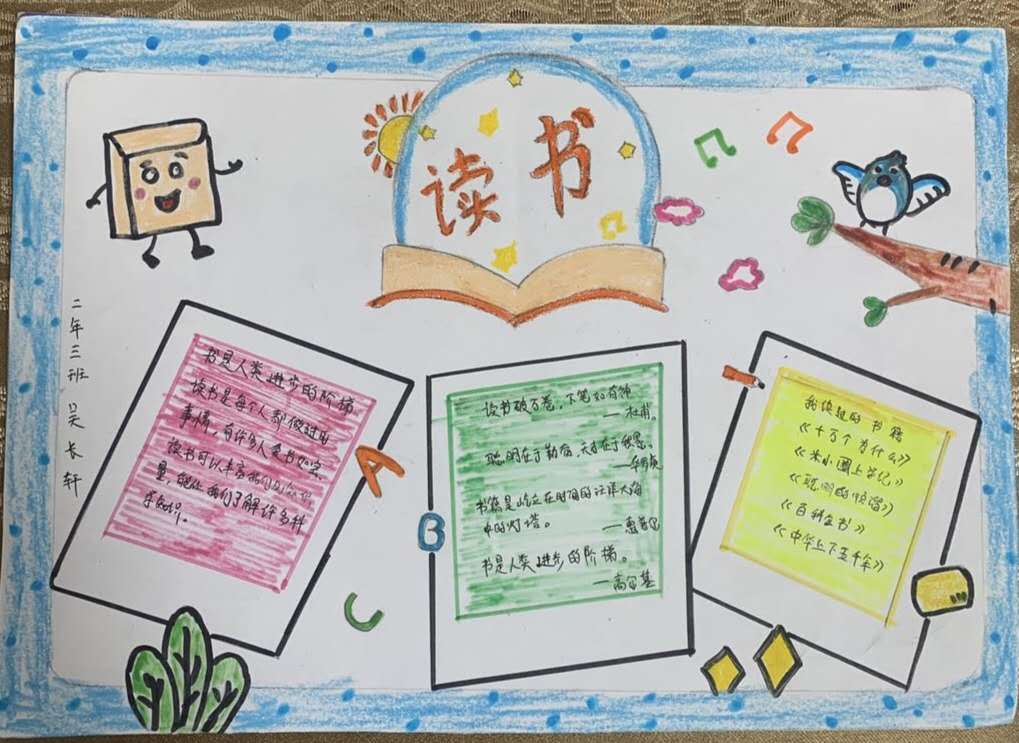 读书
二年三班 吴长轩
书是人类进步的阶梯
读书是每个人都做过的
事情,有许多人爱书如宝
读书可以丰富我们的知识
量,能让我们了解许多科
学知识。
A
B
C
读书破万卷,下笔如有神
——杜甫。
聪明在于勤奋,天才在于积累。
——华罗庚
书籍是屹立在时间的汪洋大海
中的灯塔。——惠普尔
书是人类进步的阶梯。
——高尔基
我读过的书籍
《十万个为什么》
《米小圈上学记》
《聪明的
《百科全书》
《中华上下五千年》